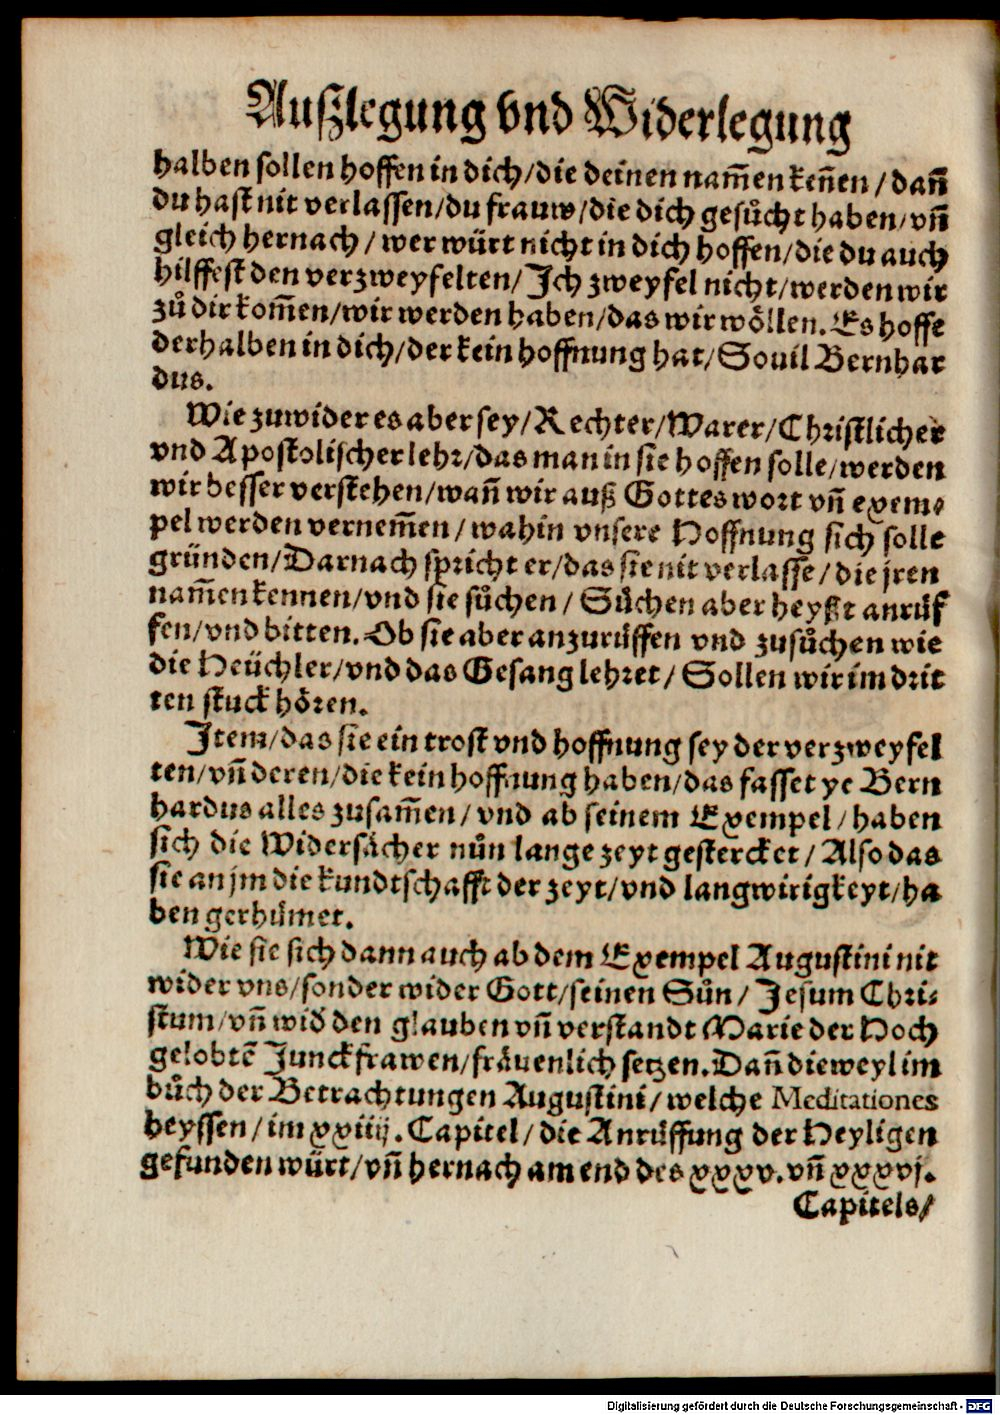 Außlegung vnd Widerlegung
halben sollen hoffen in dich/die deinen nam̄en ken̄en/dan̄
du hast nit verlassen/du frauw/die dich gesůcht haben/vn̄
gleich hernach/wer würt nicht in dich hoffen/die du auch
hilffest den verzweyfelten/Jch zweyfel nicht/werden wir
zů dir kom̄en/wir werden haben/das wir wöllen. Es hoffe
derhalben in dich/der kein hoffnung hat/Souil Bernhar
dus.
Wie zuwider es aber sey/Rechter/Warer/Christlicher
vnd Apostolischer lehr/das man in sie hoffen solle/werden
wir besser verstehen/wan̄ wir auß Gottes wort vn̄ exem⸗
pel werden vernem̄en/wahin vnsere Hoffnung sich solle
gründen/Darnach spricht er/das sie nit verlasse/die jren
nam̄en kennen/vnd sie sůchen/Sůchen aber heyßt anrůf
fen/vnd bitten. Ob sie aber anzurůffen vnd zusůchen wie
die Heüchler/vnd das Gesang lehret/Sollen wir im drit
ten stuck hören.
Jtem/das sie ein trost vnd hoffnung sey der verzweyfel
ten/vn̄ deren/die kein hoffnung haben/das fasset ye Bern
hardus alles zusam̄en/vnd ab seinem Exempel/haben
sich die Widersächer nůn lange zeyt gestercket/Also das
sie an jm die kundtschafft der zeyt/vnd langwirigkeyt/ha
ben gerhůmet.
Wie sie sich dann auch ab dem Exempel Augustini nit
wider vns/sonder wider Gott/seinen Sůn/Jesum Chri⸗
stum/vn̄ wid̄ den glauben vn̄ verstandt Marie der Hoch
gelobtē Junckfrawen/fräuenlich setzen. Dan̄ dieweyl im
bůch der Betrachtungen Augustini/welche Meditationes
heyssen/im xxiiij. Capitel/die Anrůffung der Heyligen
gefunden würt/vn̄ hernach am end des xxxv. vn̄ xxxvj.
Capitels/
Digitalisierung gefördert durch die Deutsche Forschungsgemeinschaft - DFG